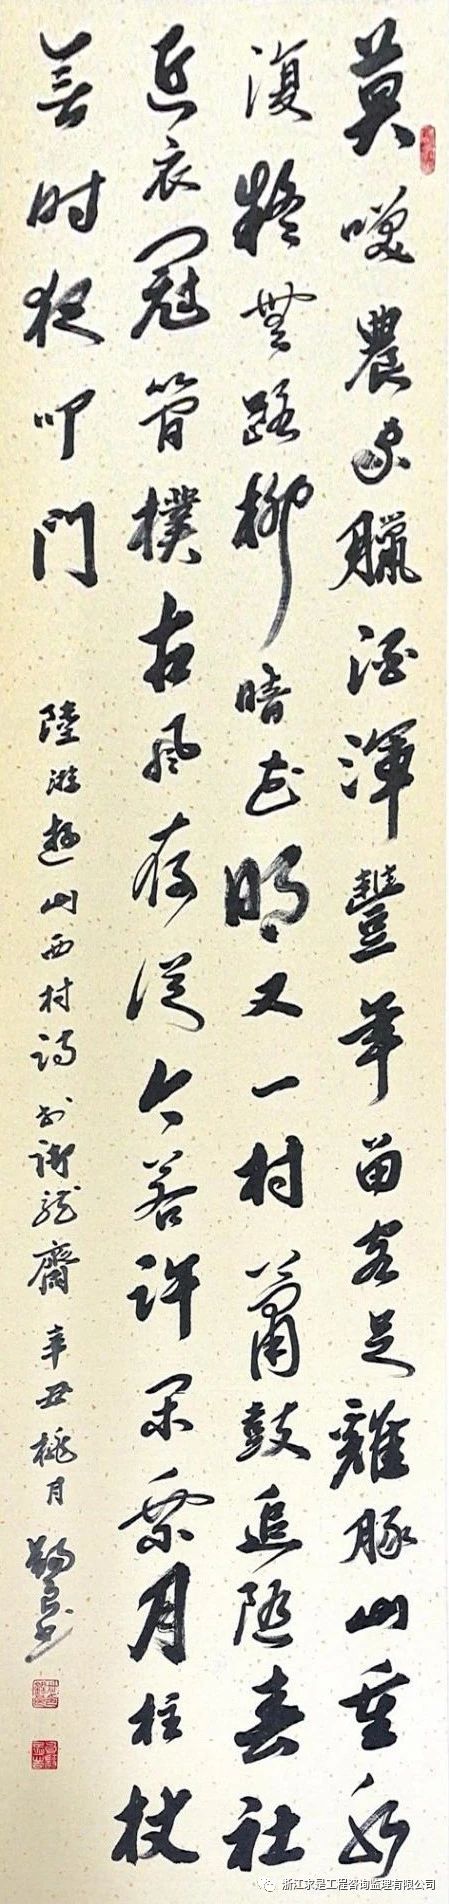 莫咲農家臘酒渾豐年留客足雞豚山重水
復疑無路柳暗花明又一村簫鼓追隨春社
近衣冠簡樸古風存從今若許閑乘月柱杖
無时夜叩門
陸游遊山西村詩 龍齋 辛丑桃月 書
浙江求是工程咨询监理有限公司